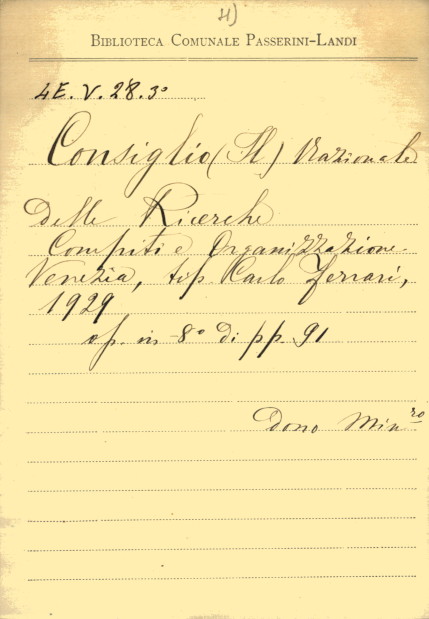 4)
BIBLIOTECA COMUNALE PASSERINI-LANDI
4E. V. 28. 3°
Consiglio (Il) Nazionale
delle Ricerche
Compiti e Organizzazione.
Venezia, tip. Carlo Ferrari,
1929
op. in 8° di pp. 91
Dono Min.ro